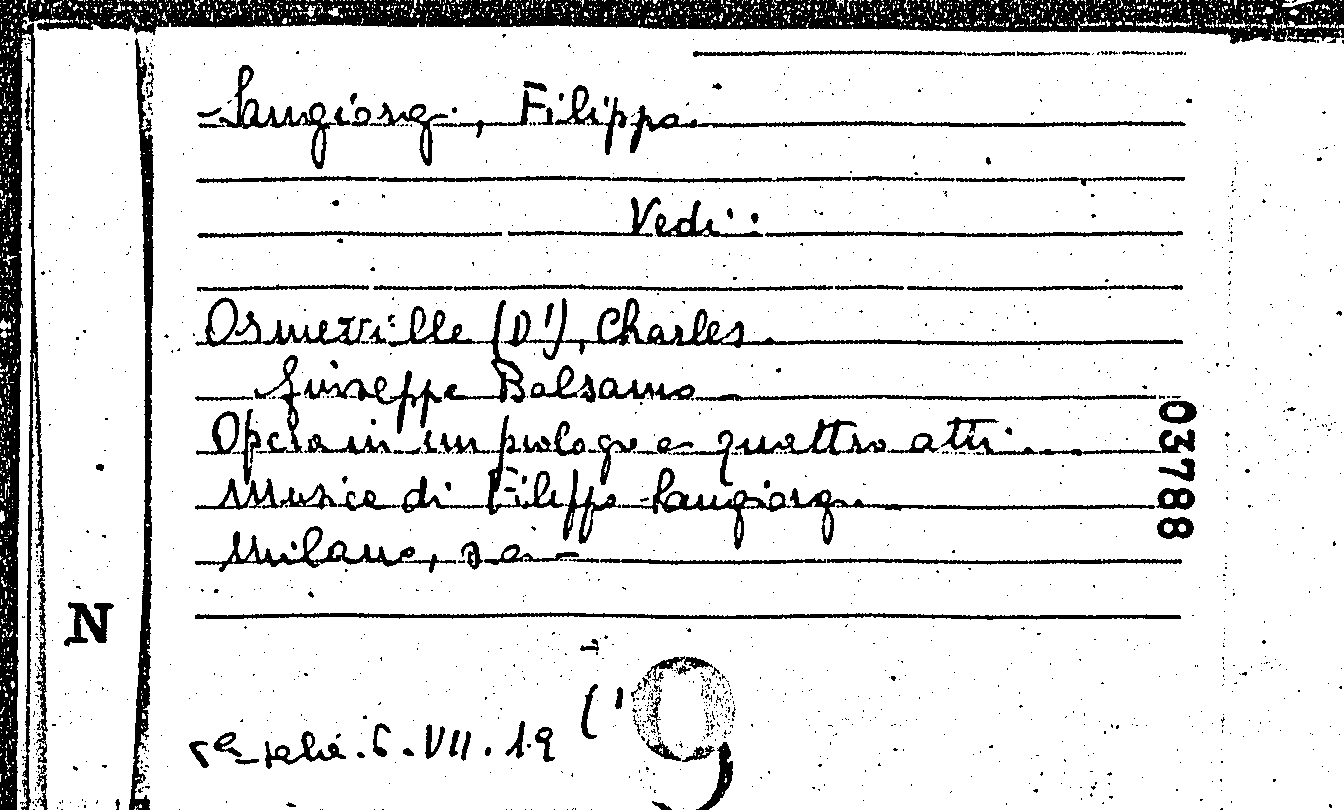 Sangiorgi, Filippo.
Vedi:
Osmeville (D'), Charles.
Giuseppe Balsamo -
Opera in un prologo e quattro atti...
Musica di Filippo Sangiorgi. -
Milano, s. a. -
03788
N
5ª serie. 6. VII. 19